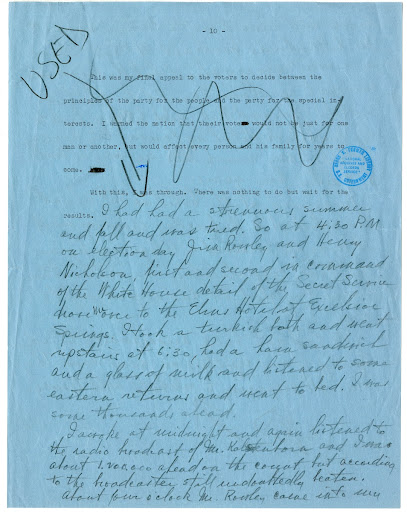 - 10 -
USED
This was my final appeal to the voters to decide between the
principles of the party for the people and the party for the special in-
terests. I warned the nation that their votes would not be just for one
man or another, but would affect every person and his family for years to
come.
With this, I was through. There was nothing to do but wait for the
results. I had had a strenuous summer
and fall and was tired. So at 4:30 P.M.
on election day Jim Rowley and Henry
Nicholson, first and second in command
of the White House detail of the Secret Service
drove me to the Elms Hotel at Excelsior
Springs. I took a turkish bath and went
upstairs at 6:30, had a ham sandwich
and a glass of milk and listened to some
eastern returns and went to bed. I was
some thousands ahead.
I awoke at midnight and again listened to
the radio broadcast of Mr. Kaltenborn and I was
about ahead on the count, but according
to the broadcaster still undoubtedly beaten.
About four o'clock Mr. Rowley came into my